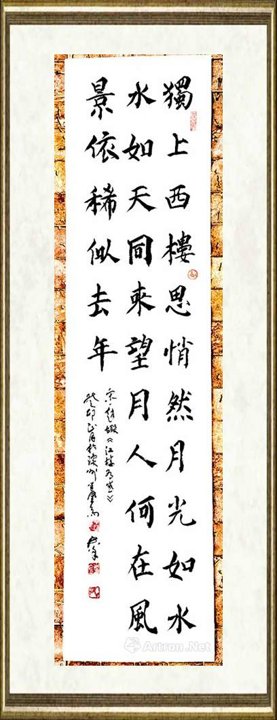 獨上西樓思悄然月光如水
水如天同來望月人何在風
景依稀似去年
趙嘏《江樓有感》
癸卯
Artron.Net